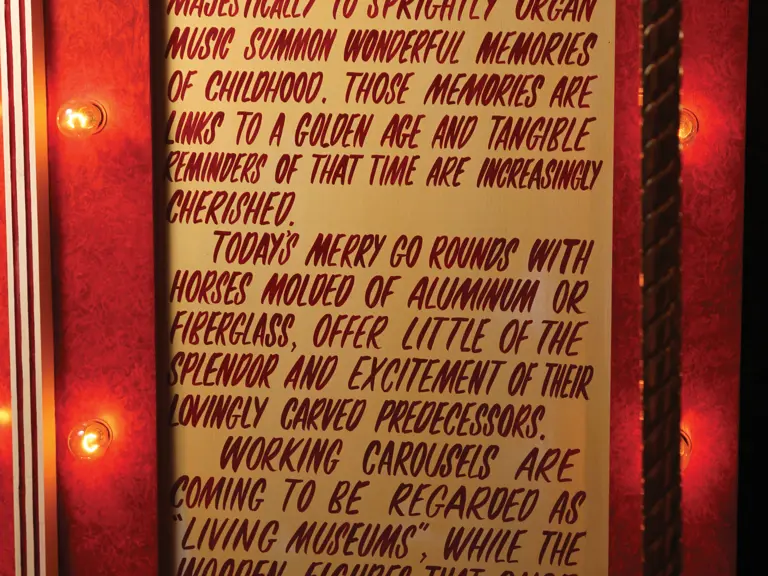 MAJESTICALLY TO SPRIGHTLY ORGAN
MUSIC SUMMON WONDERFUL MEMORIES
OF CHILDHOOD. THOSE MEMORIES ARE
LINKS TO A GOLDEN AGE AND TANGIBLE
REMINDERS OF THAT TIME ARE INCREASINGLY
CHERISHED.
TODAY'S MERRY GO ROUNDS WITH
HORSES MOLDED OF ALUMINUM OR
FIBERGLASS, OFFER LITTLE OF THE
SPLENDOR AND EXCITEMENT OF THEIR
LOVINGLY CARVED PREDECESSORS.
WORKING CAROUSELS ARE
COMING TO BE REGARDED AS
"LIVING MUSEUMS", WHILE THE
WOODEN FIGURES THAT ONCE